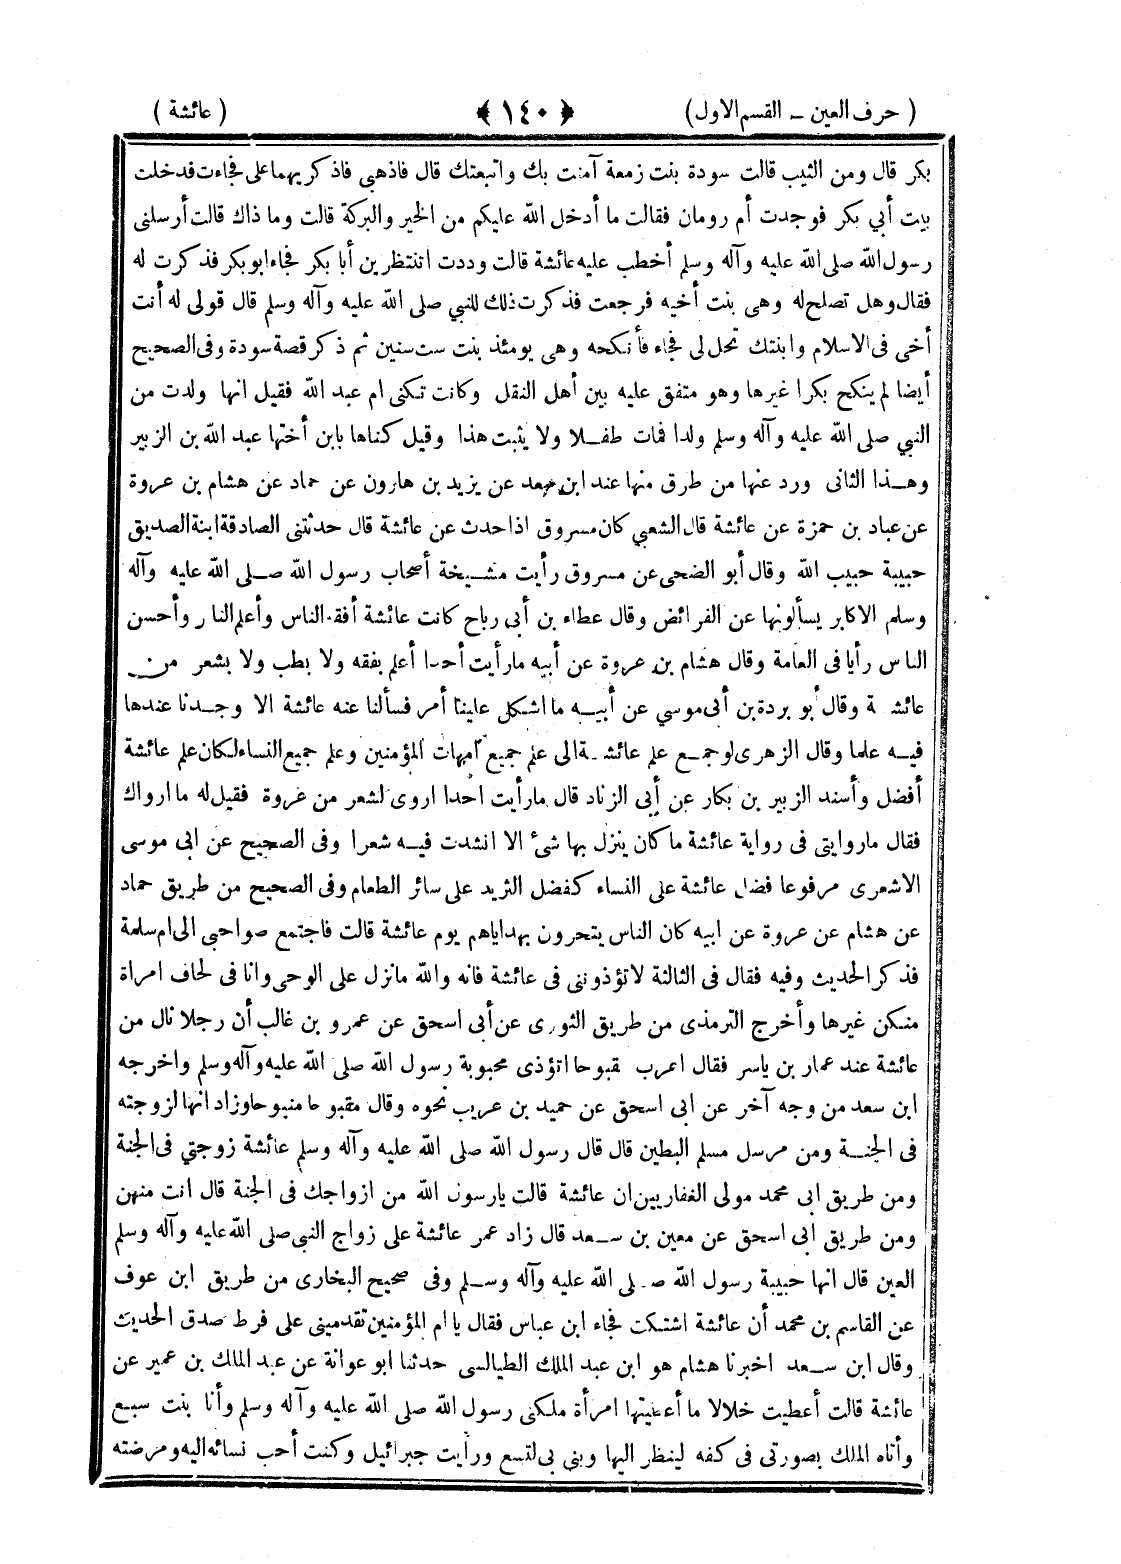 ( حرف العين – القسم الاول ) ﴿ ١٤٠ ﴾ ( عائشة )
بكر قال ومن الثيب قالت سودة بنت زمعة آمنت بك واتبعتك قال فاذهبي فاذكريهما على فجاءت فدخلت
بيت أبي بكر فوجدت أم رومان فقالت ما أدخل الله عليكم من الخير والبركة قالت وما ذاك قالت أرسلنى
رسول الله صلى الله عليه وآله وسلم أخطب عليه عائشة قالت وددت انتنظرين أبا بكر فجاء ابو بكر فذكرت له
فقال وهل تصلح له وهى بنت أخيه فرجعت فذكرت ذلك للنبي صلى الله عليه وآله وسلم قال قولى له أنت
أخى فى الاسلام وابنتك تحل لى فجاء فأنكحه وهى يومئذ بنت ست سنين ثم ذكر قصة سودة وفى الصحيح
أيضا لم ينكح بكرا غيرها وهو متفق عليه بين أهل النقل وكانت تكنى ام عبد الله فقيل انها ولدت من
النبي صلى الله عليه وآله وسلم ولدا فمات طفلا ولا يثبت هذا وقيل كناها بابن أختها عبد الله بن الزبير
وهذا الثانى ورد عنها من طرق منها عند ابن سعد عن يزيد بن هارون عن حماد عن هشام بن عروة
عن عباد بن حمزة عن عائشة قال الشعبي كان مسروق اذا حدث عن عائشة قال حدثتنى الصادقة ابنة الصديق
حبيبة حبيب الله وقال أبو الضحى عن مسروق رأيت مشيخة أصحاب رسول الله صلى الله عليه وآله
وسلم الاكابر يسألونها عن الفرائض وقال عطاء بن أبى رباح كانت عائشة أفقه الناس وأعلم الناس وأحسن
الناس رأيا فى العامة وقال هشام بن عروة عن أبيه ما رأيت أحدا أعلم بفقه ولا بطب ولا بشعر من
عائشة وقال أبو بردة بن أبى موسي عن أبيه ما اشكل علينا أمر فسألنا عنه عائشة الا وجدنا عندها
فيه علما وقال الزهرى لو جمع علم عائشة الى علم جميع امهات المؤمنين وعلم جميع النساء لكان علم عائشة
أفضل وأسند الزبير بن بكار عن أبي الزناد قال ما رأيت احدا اروى لشعر من عروة فقيل له ما ارواك
فقال ما روايتى فى رواية عائشة ما كان ينزل بها شئ الا انشدت فيه شعرا وفى الصحيح عن ابى موسى
الاشعرى مرفوعا فضل عائشة على النساء كفضل الثريد على سائر الطعام وفى الصحيح من طريق حماد
عن هشام عن عروة عن ابيه كان الناس يتحرون بهداياهم يوم عائشة قالت فاجتمع صواحبى الى ام سلمة
فذكر الحديث وفيه فقال فى الثالثة لا تؤذونى فى عائشة فانه والله ما نزل على الوحى وانا فى لحاف امرأة
منكن غيرها وأخرج الترمذى من طريق الثورى عن أبى اسحق عن عمرو بن غالب أن رجلا نال من
عائشة عند عمار بن ياسر فقال اعرب مقبوحا اتؤذى محبوبة رسول الله صلى الله عليه وآله وسلم واخرجه
ابن سعد من وجه آخر عن ابى اسحق عن حميد بن عريب نحوه وقال مقبوحا منبوحا وزاد انها لزوجته
فى الجنة ومن مرسل مسلم البطين قال قال رسول الله صلى الله عليه وآله وسلم عائشة زوجتي فى الجنة
ومن طريق ابى محمد مولى الغفاريين ان عائشة قالت يا رسول الله من ازواجك فى الجنة قال انت منهن
ومن طريق ابى اسحق عن معين بن سعد قال زاد عمر عائشة على زواج النبى صلى الله عليه وآله وسلم
العين قال انها حبيبة رسول الله صلى الله عليه وآله وسلم وفى صحيح البخارى من طريق ابن عوف
عن القاسم بن محمد أن عائشة اشتكت فجاء ابن عباس فقال يا ام المؤمنين تقدمينى على فرط صدق الحديث
وقال ابن سعد اخبرنا هشام هو ابن عبد الملك الطيالسى حدثنا ابو عوانة عن عبد الملك بن عمير عن
عائشة قالت أعطيت خلالا ما أعطيتها امرأة ملكنى رسول الله صلى الله عليه وآله وسلم وأنا بنت سبع
وأتاه الملك بصورتى فى كفه لينظر اليها وبنى بي لتسع ورأيت جبرائيل وكنت أحب نسائه اليه ومرضته